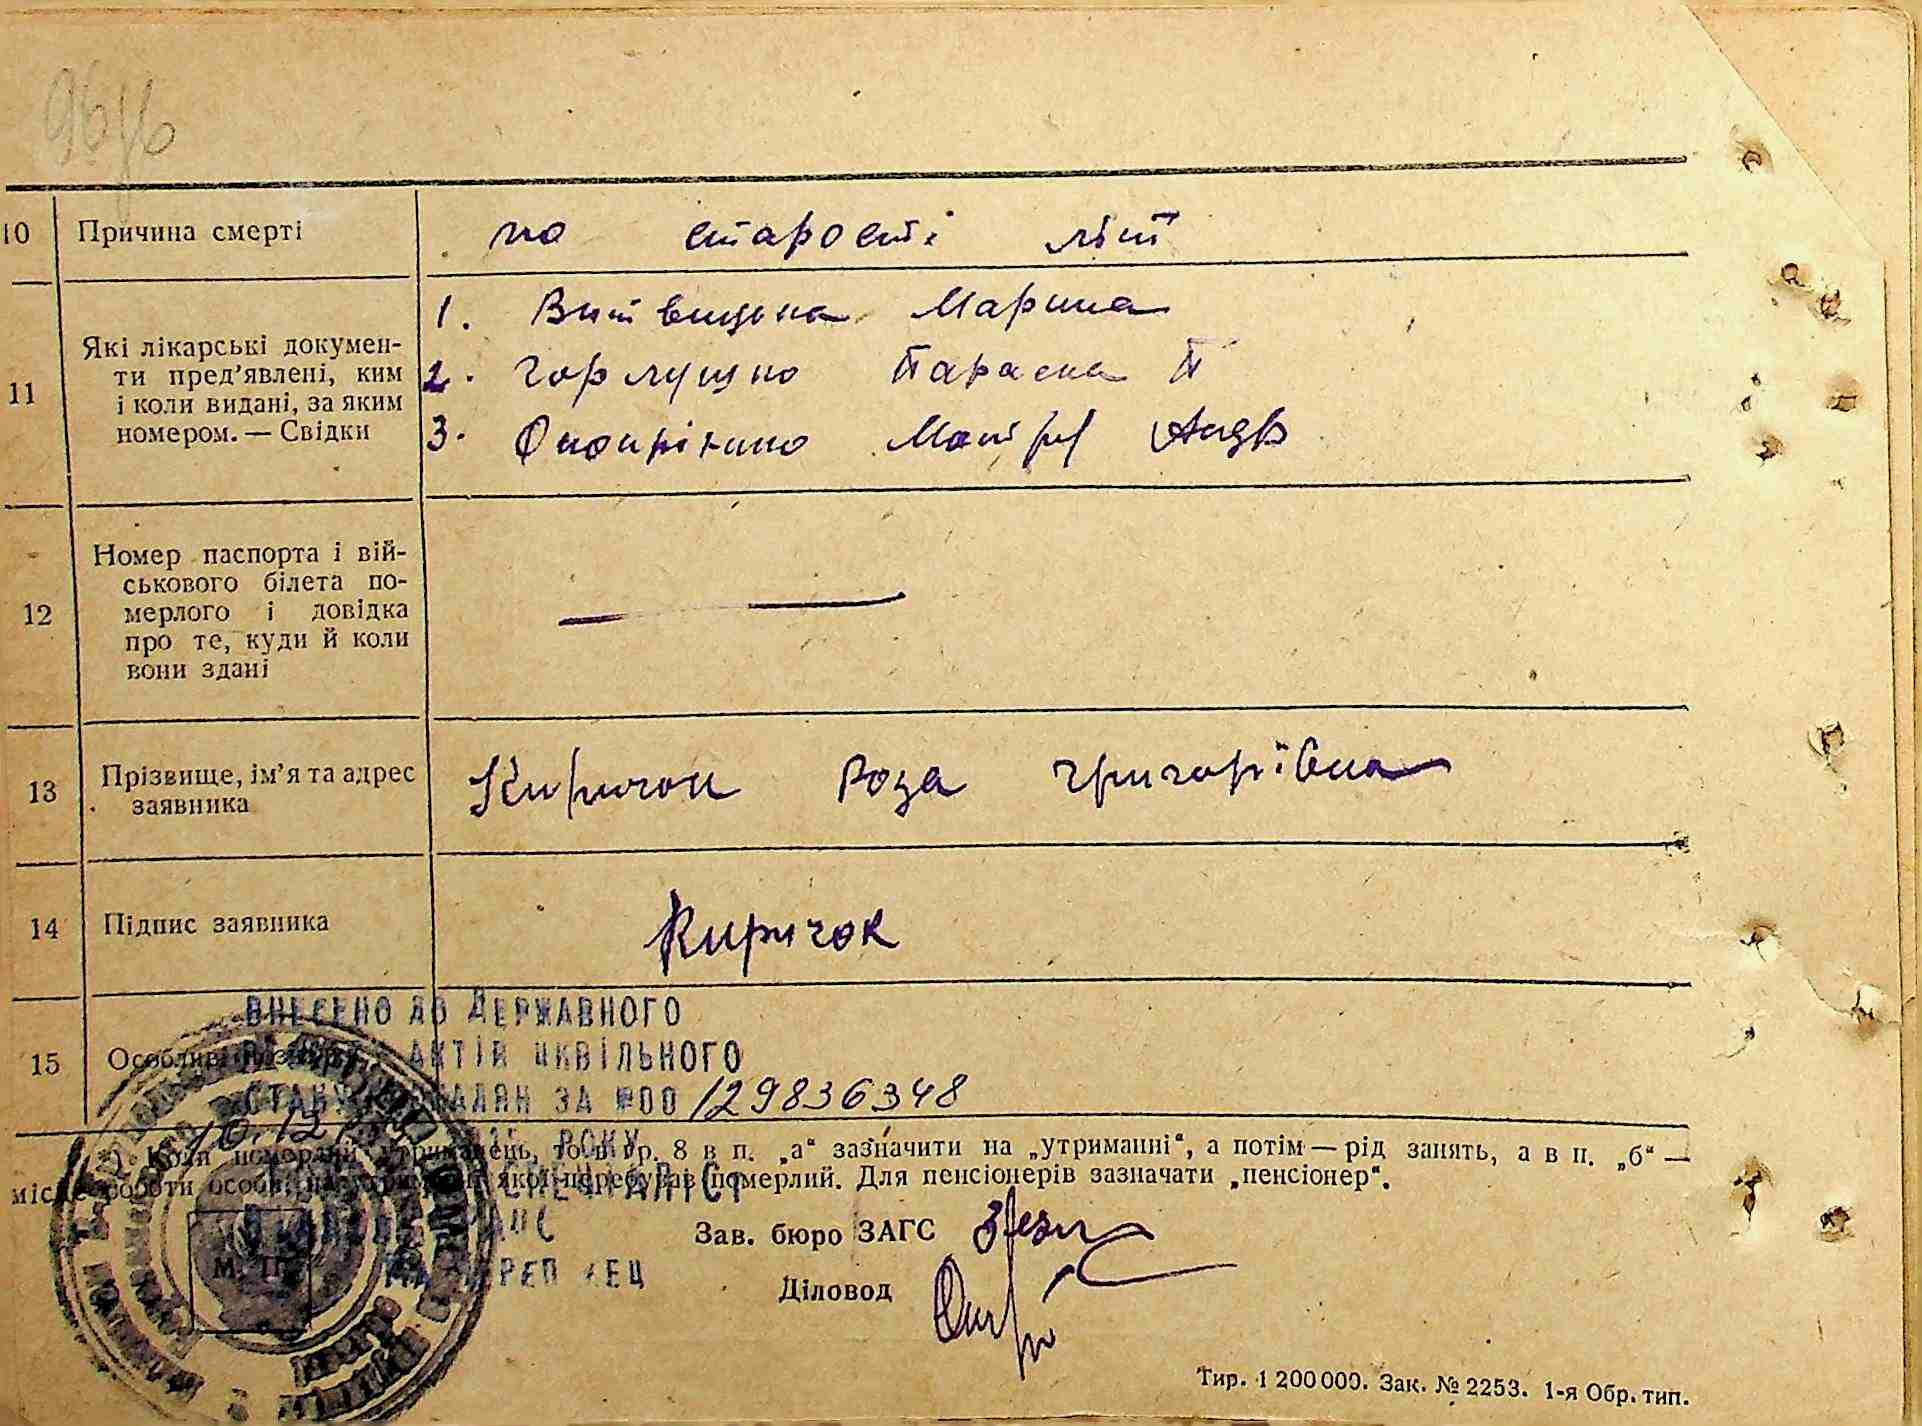 10 Причина смерті по старості літ
11 Які лікарські докумен-
ти пред’явлені, ким
і коли видані, за яким
номером. — Свідки
1. Марина
2. Горлущко Параска П
3.
12 Номер паспорта і вій-
ськового білета по-
мерлого і довідка
про те, куди й коли
вони здані
13 Прізвище, ім’я та адрес
заявника
Киричок Роза Григорівна
14 Підпис заявника
Киричок
ВНЕСЕНО ДО ДЕРЖАВНОГО
15 Особливі
АКТІВ ЦИВІЛЬНОГО
СТАНУ ГРОМАДЯН ЗА №00 129836348
10.12
РОКУ
Коли померлий утриманець, то в гр. 8 в п. „а“ зазначити на „утриманні“, а потім — рід занять, а в п. „б“ —
місце роботи особи, на утриманні якої перебував померлий. Для пенсіонерів зазначати „пенсіонер“.
СПЕЦІАЛІСТ
Зав. бюро ЗАГС
М. П.
Діловод
Тир. 1 200 000. Зак. № 2253. 1-я Обр. тип.